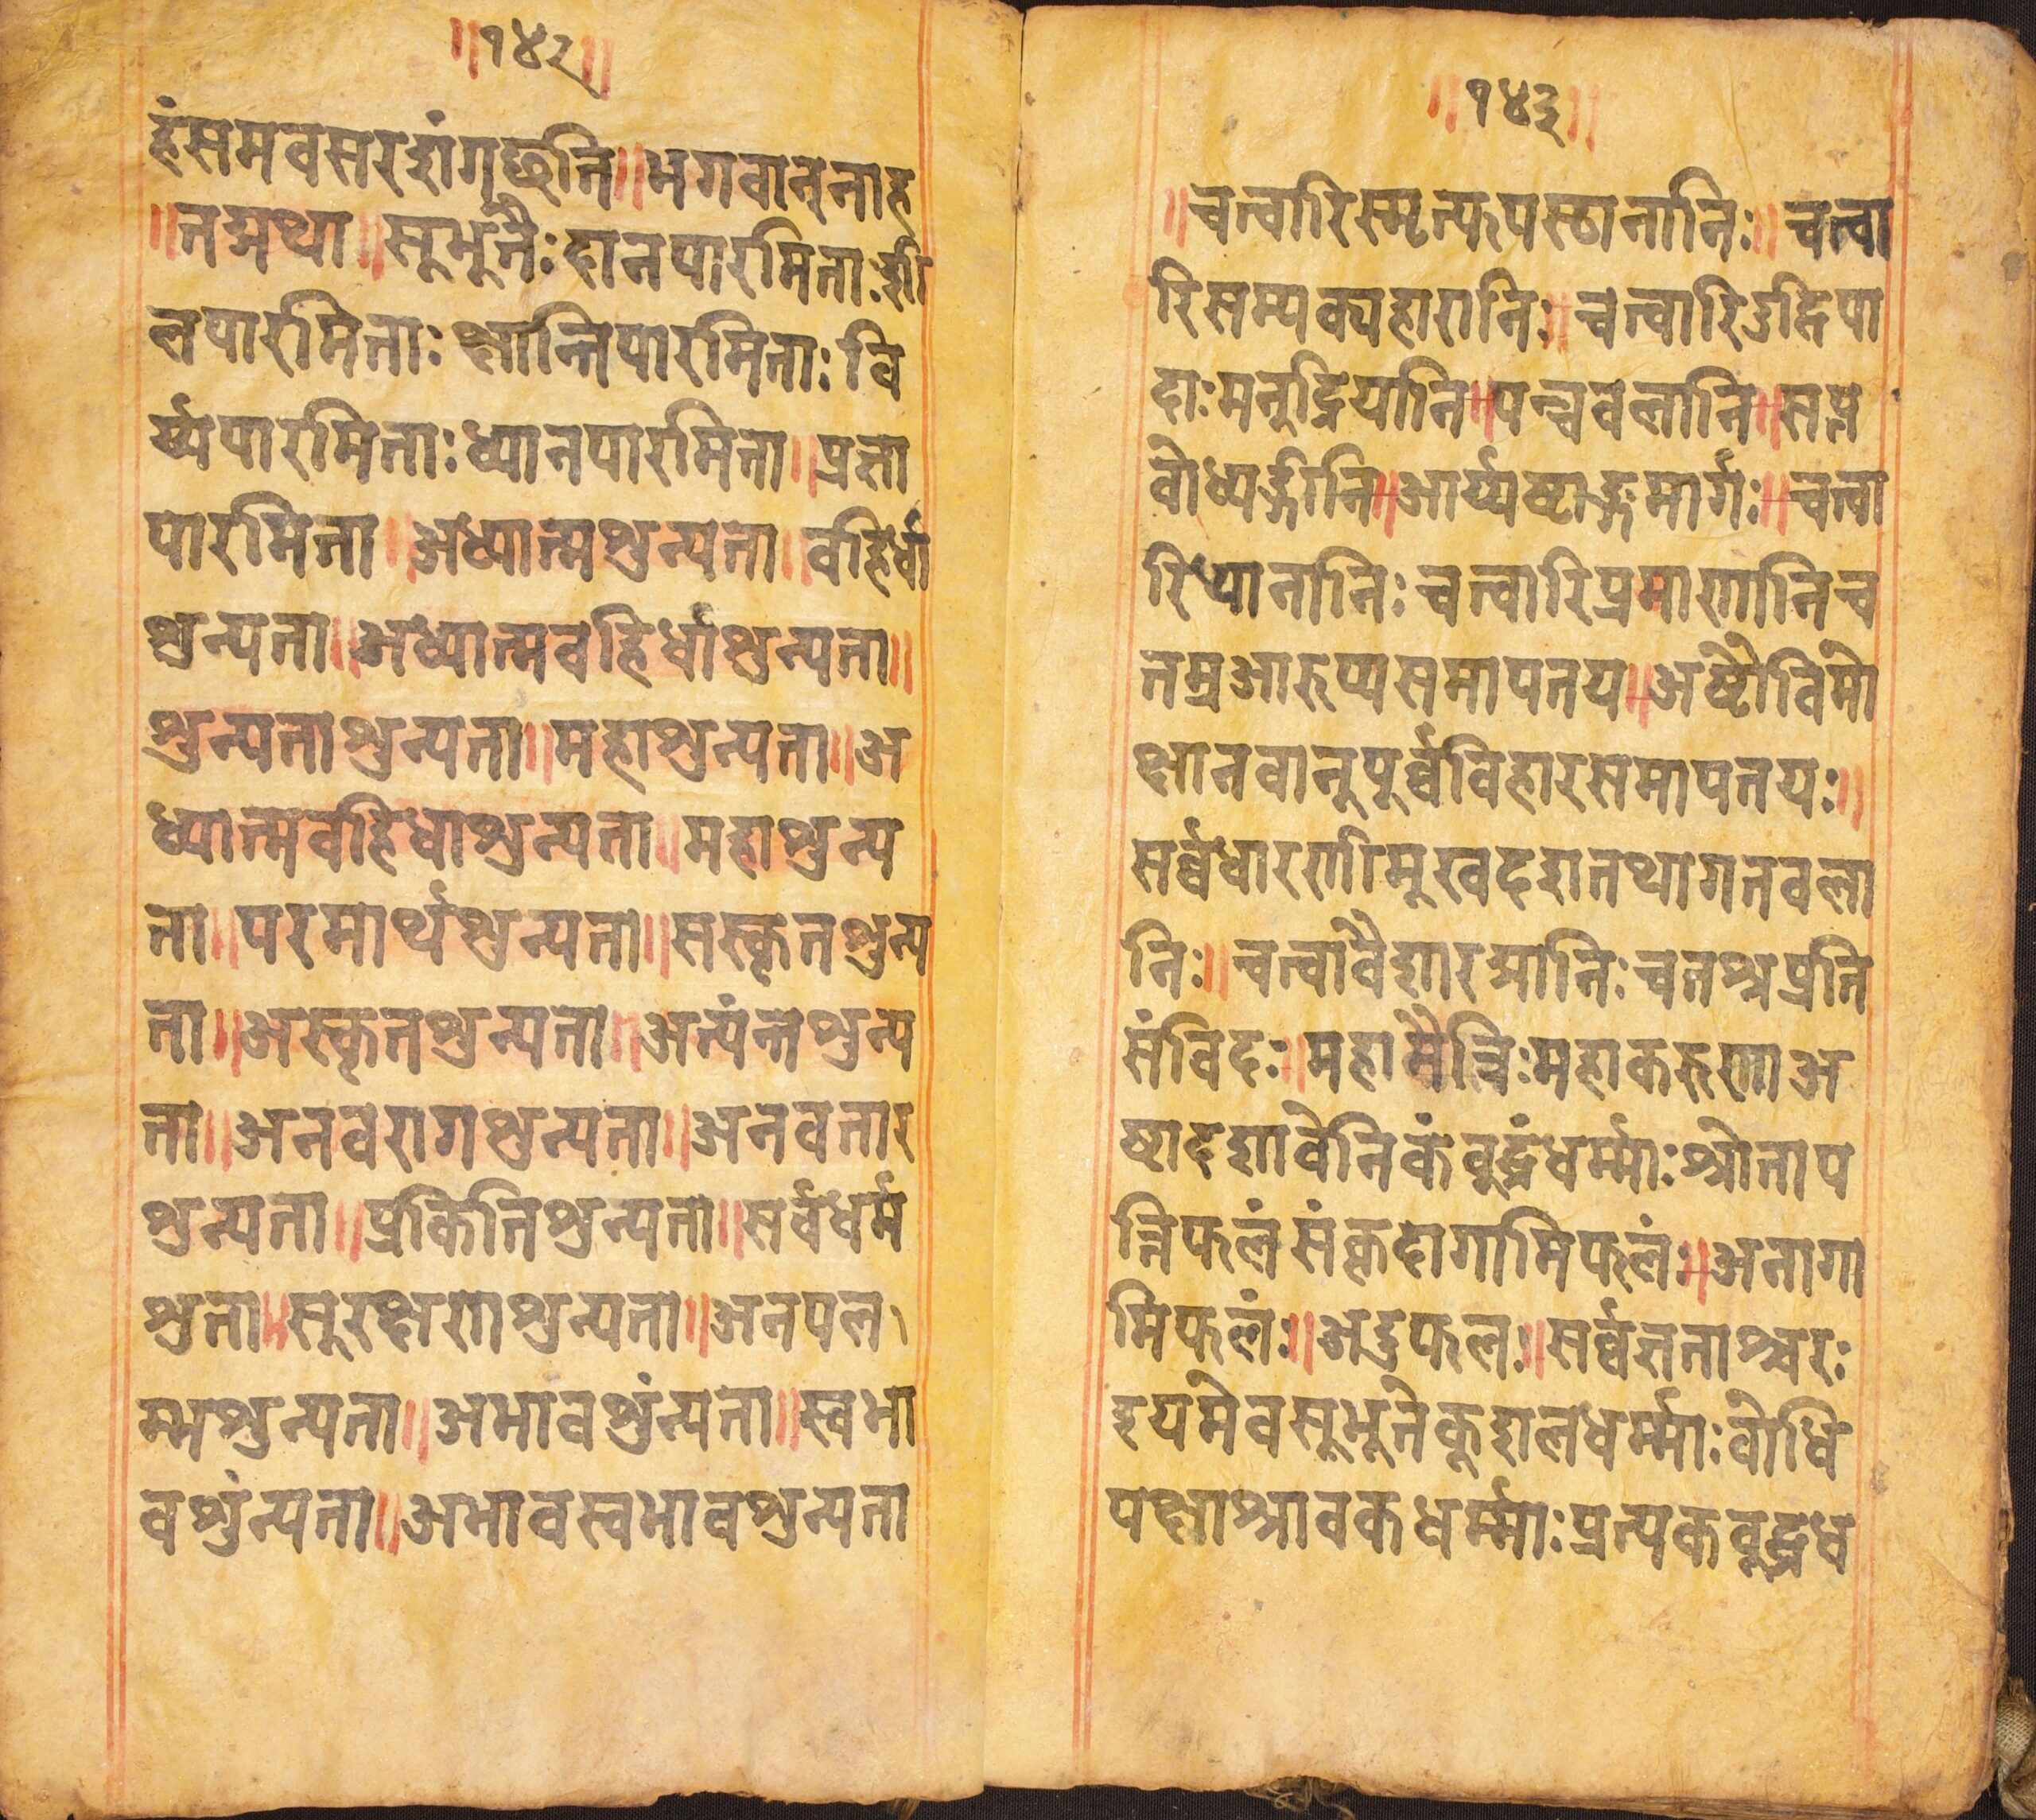 ॥१४२॥
हंसमवसरशांगृछति॥भगवान्नाह
॥तद्मथा॥सुभूतैःदानपारमिताःशी
लपारमिताःक्षान्तिपारमिताःवि
र्य्यपारमिताःध्यानपारमिता॥प्रज्ञा
पारमिता॥अध्यात्मशुन्यता॥वहिर्धा
शुन्यता॥अध्यात्मवहिर्धाशुन्यता॥
शुन्यताशुन्यता॥महाशुन्यता॥अ
ध्यात्मवहिधाशुन्यता॥महाशुन्य
ता॥परमार्थशुन्यता॥सस्कृतशुन्य
ता॥अस्कृतशुन्यता॥अत्यंन्तशुन्य
ता॥अनवरागशुन्यता॥अनवतार
शुन्यता॥प्रकितिशुन्यता॥सर्वधर्म
शुता॥सुरक्षणशुन्यता॥अनपल
म्भशुन्यता॥अभावशुंन्यता॥स्वभा
वशुंन्यता॥अभावस्वभावशुन्यता
॥१४३॥
॥चत्वारिस्मृत्फपस्ठानानिः॥चत्वा
रिसम्यक्यहारानिः॥चत्वारिऽद्धिपा
दाःमनुद्रियानि॥पन्चवलानि॥सप्त
वोध्यर्ङ्गानि॥आर्य्यष्टाङ्गमार्गः॥चत्वा
रिध्यानानिःचत्वारिप्रमाणानिच
तम्रआरुप्यसमापतय॥अष्टौविमो
क्षानवानुपूर्व्वविहारसमापतयः॥
सर्व्वधारणीमुखदशतथागतवला
निः॥चत्वावैशारद्मानिःचतश्रप्रति
संविदः॥महामैत्रिःमहाकरुणाअ
ष्टादशावेनिकंवुद्धंधर्म्माःश्रोताप
त्तिफलंसंकृदागामिफलंः॥अनागा
मिफलंः॥अर्हफलः॥सर्व्वज्ञताश्चरः
इयमेवसुभूतेकुशलधर्म्माःवोधि
पक्षाश्रावकधर्म्माःप्रत्यकवुद्धध